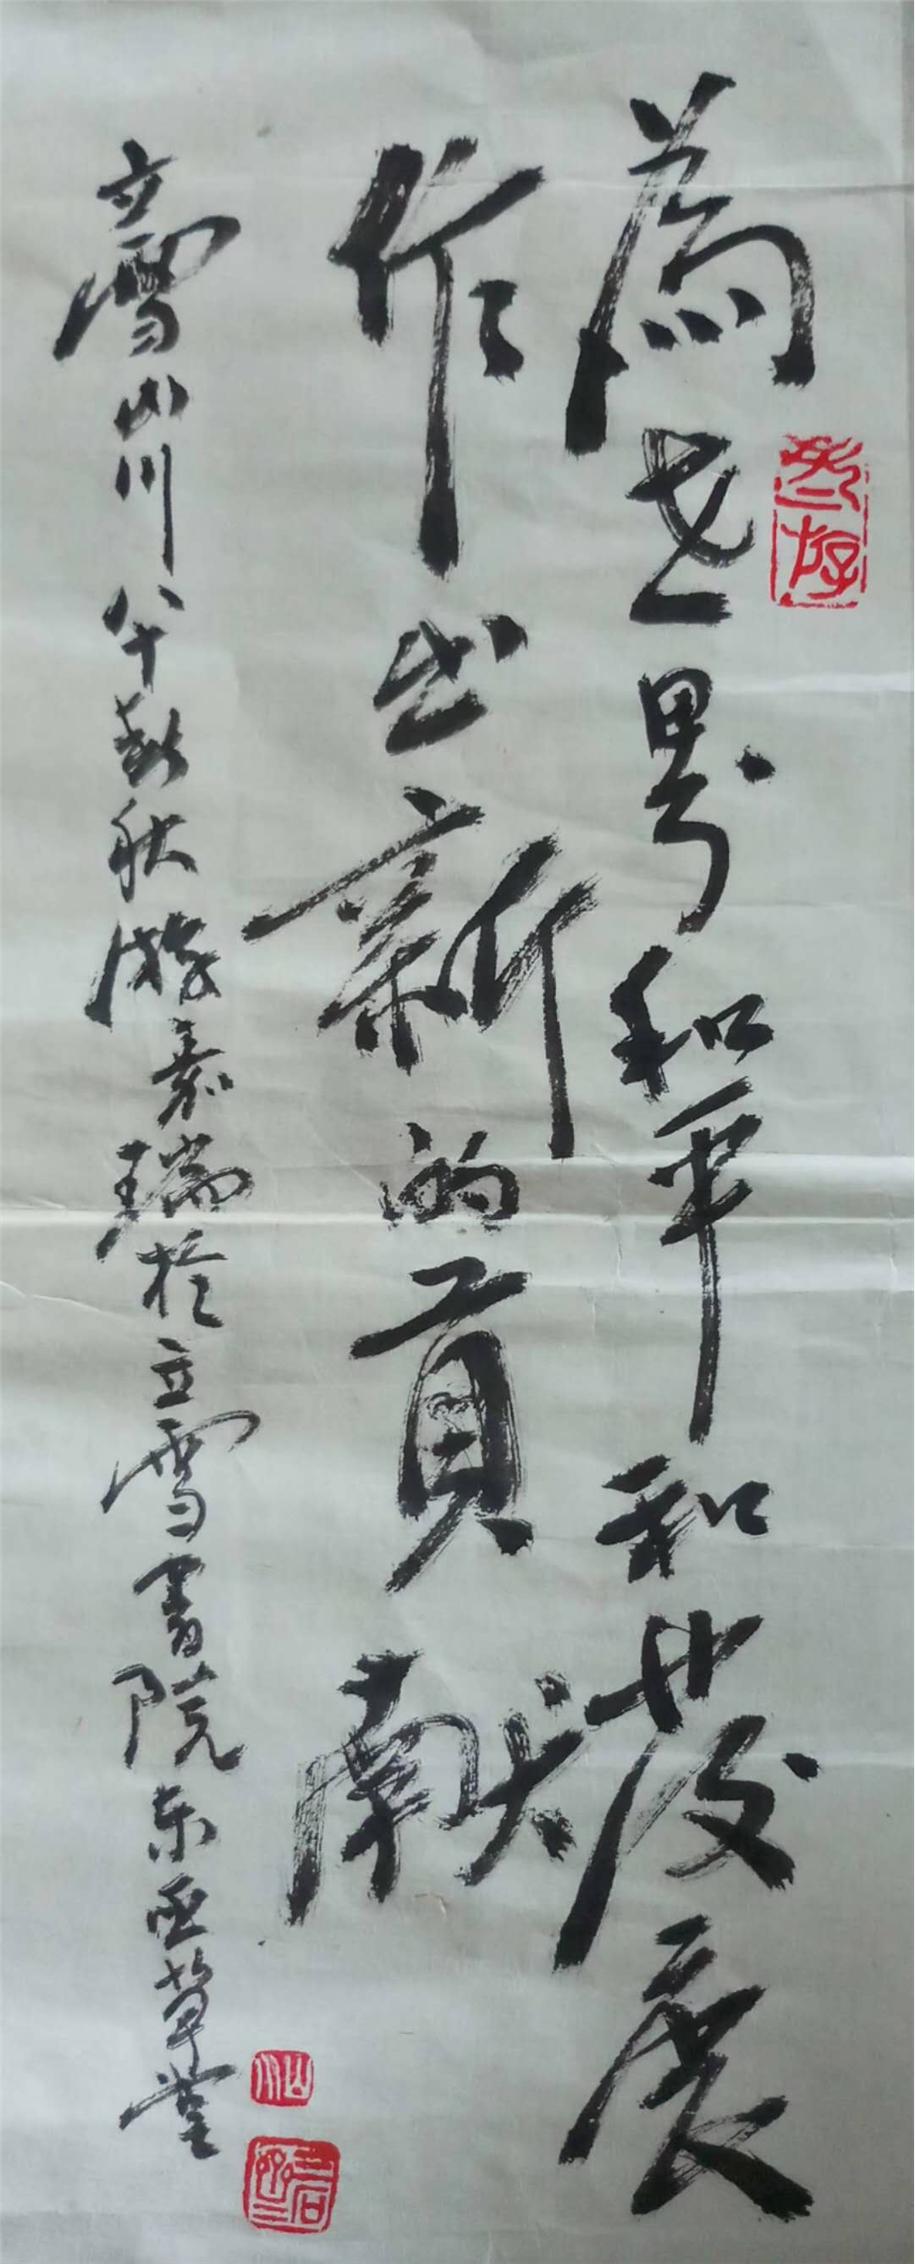 為世界和平和發展
作出新的貢獻
立雪山川八十春秋游嘉瑞於立雪書院東西草堂
山川